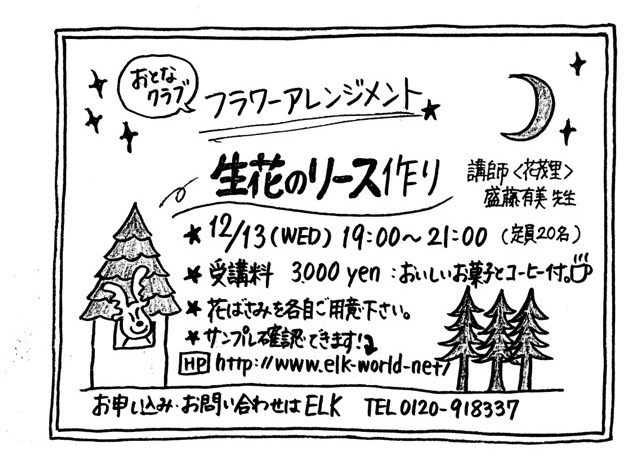 おとな
クラブ
フラワーアレンジメント★
生花のリース作り
講師〈花茂里〉
盛藤有美 先生
★ 12/13(WED) 19:00〜21:00 (定員20名)
★ 受講料 3,000 yen:おいしいお菓子とコーヒー付。
★ 花ばさみを各自ご用意下さい。
★ サンプル確認できます!
HP http://www.elk-world-net/
お申し込み・お問い合わせはELK TEL 0120-918337